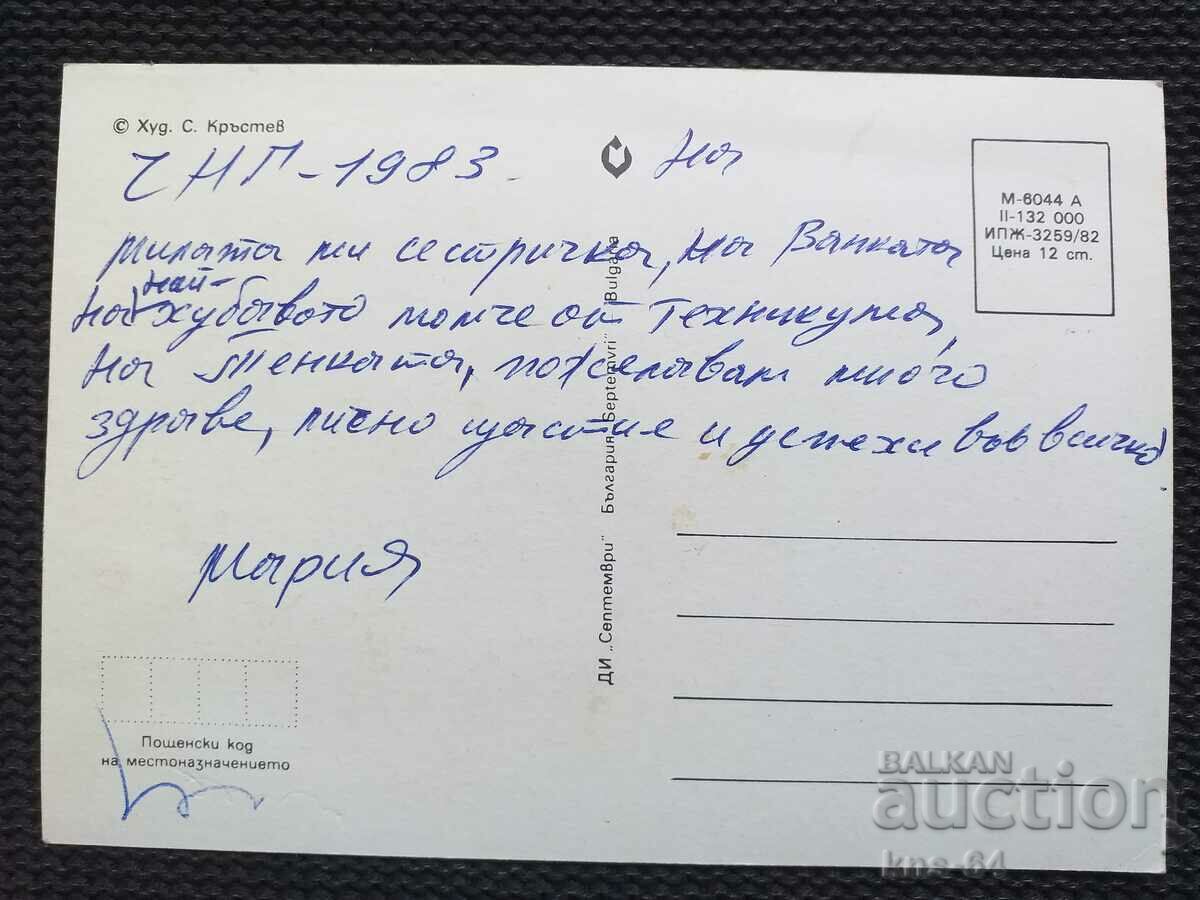 © Худ. С. Кръстев
ЧНГ-1983
на
Милата ми сестричка, на Ванката
на най-хубавото момче от Техникума,
на Тенката, пожелавам много
здраве, лично щастие и успехи във всичко
Мария
М-6044 А
II-132 000
ИПЖ-3259/82
Цена 12 ст.
ДИ „Септември" България „Septemvri" Bulgaria
Пощенски код
на местоназначението
BALKAN
auction
kns-64